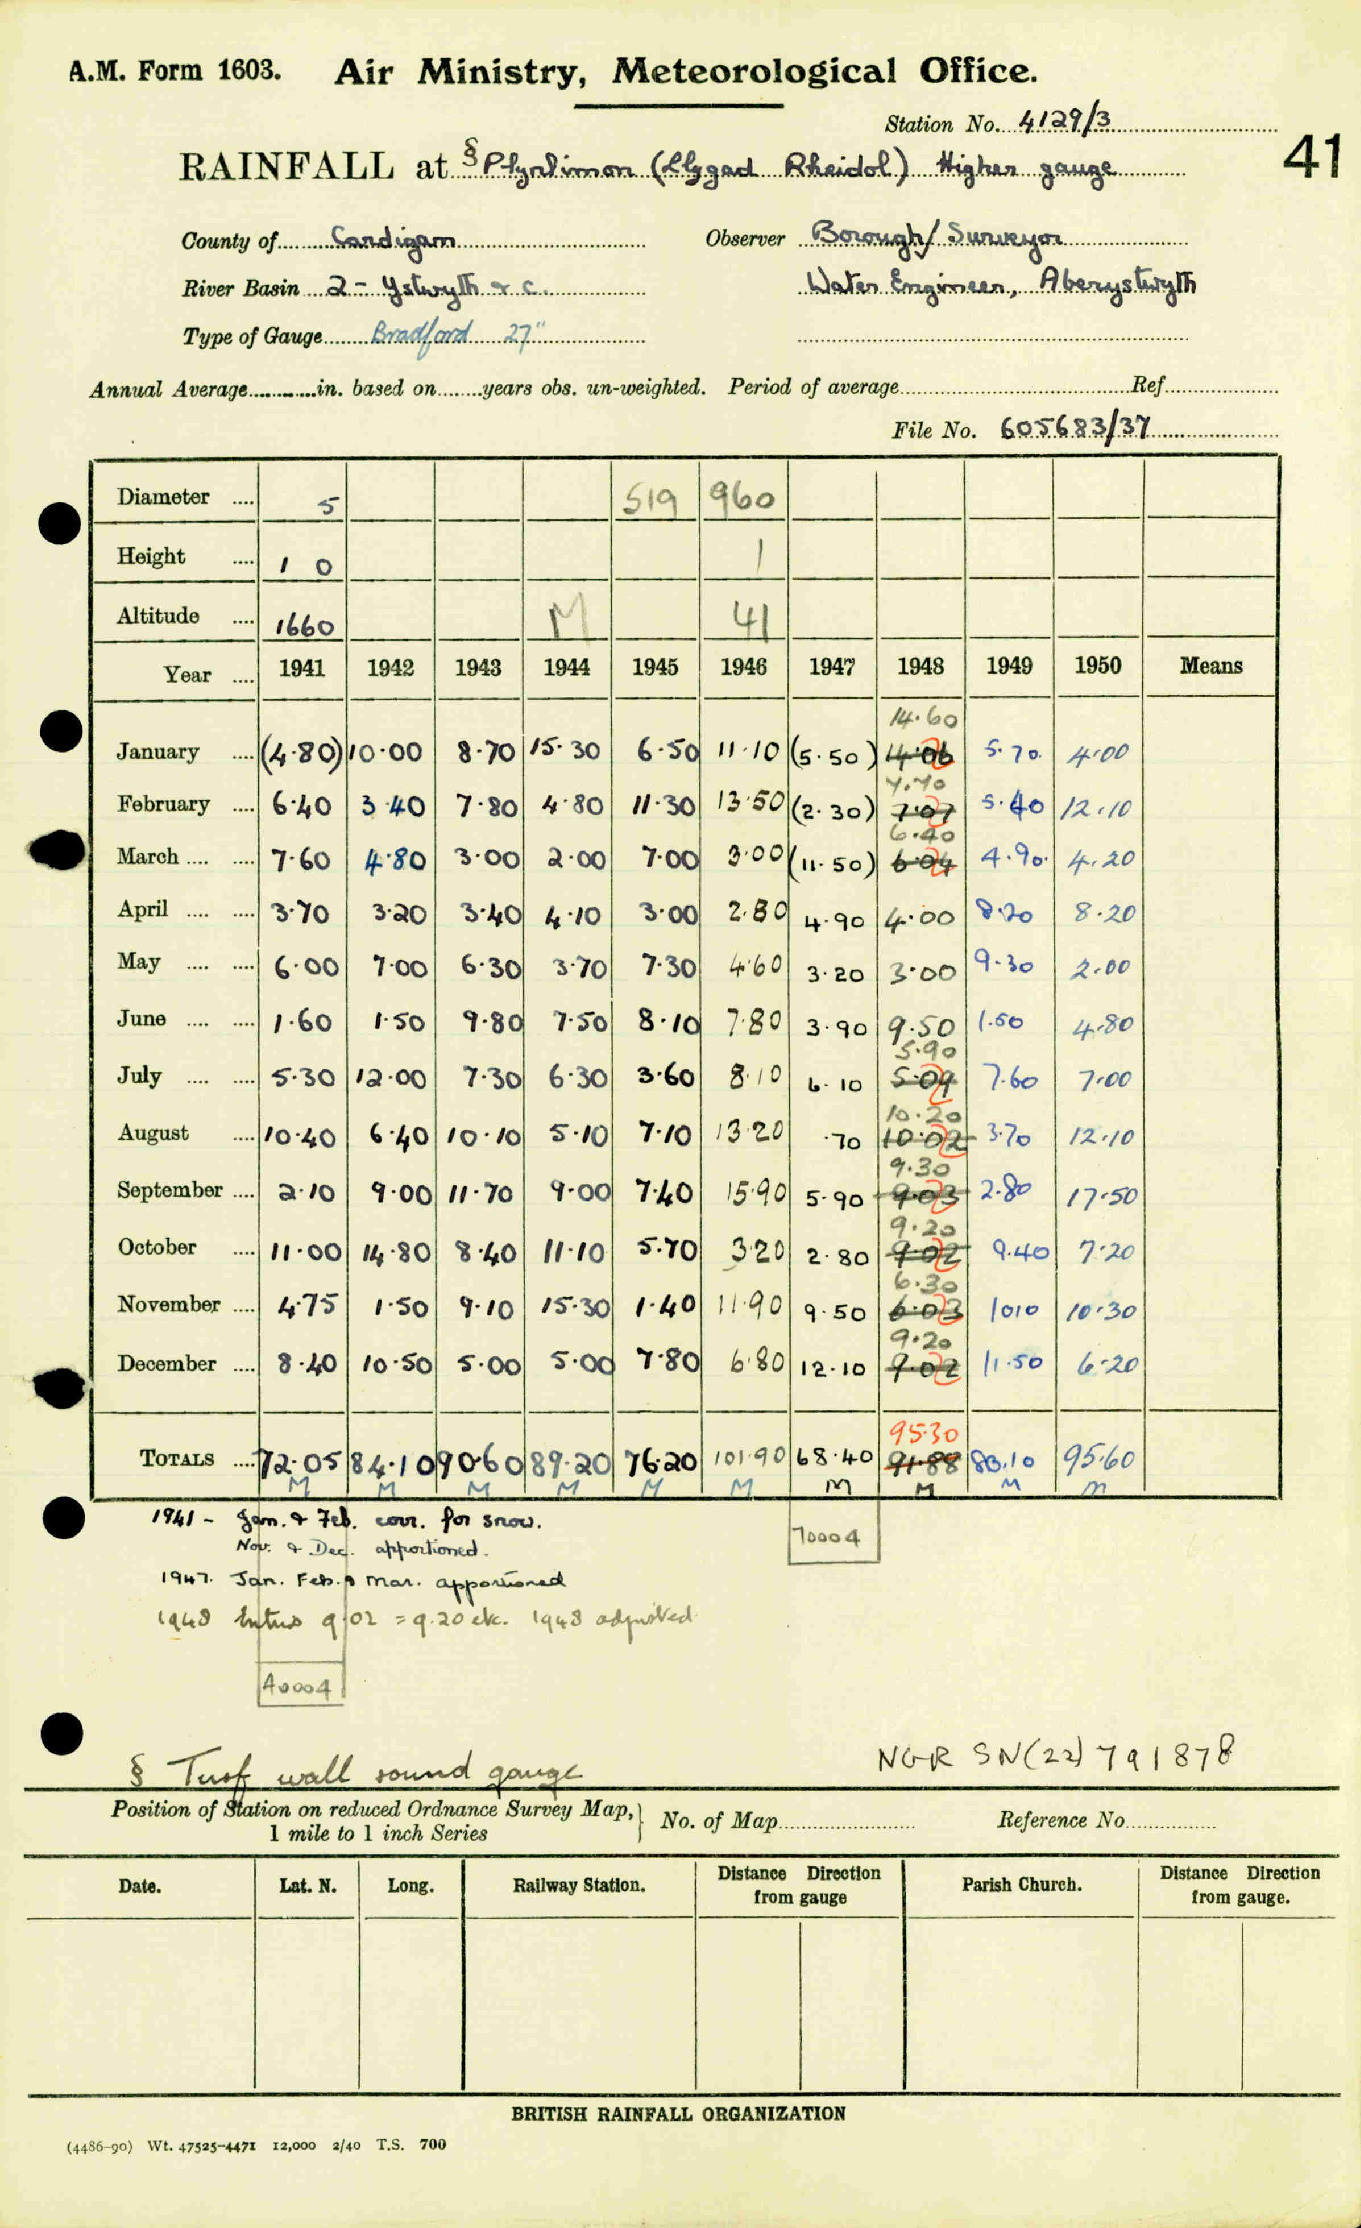 A.M. Form 1603. Air Ministry, Meteorological Office.
Station No. 4129/3
41
RAINFALL at § Plynlimon (Llygad Rheidol) Higher gauge
County of Cardigan Observer Borough/ Surveyor
River Basin 2 - Ystwyth & c. Water Engineer, Aberystwyth
Type of Gauge Bradford 27"
Annual Average in. based on years obs. un-weighted. Period of average Ref
File No. 605683/37
Diameter 5 519 960
Height 1 0 1
Altitude 1660 M 41
Year 1941 1942 1943 1944 1945 1946 1947 1948 1949 1950 Means
14.60
January (4.80) 10.00 8.70 15.30 6.50 11.10 (5.50) 14.06 5.70 4.00
7.70
February 6.40 3.40 7.80 4.80 11.30 13.50 (2.30) 7.07 5.40 12.10
6.40
March 7.60 4.80 3.00 2.00 7.00 3.00 (11.50) 6.04 4.90 4.20
April 3.70 3.20 3.40 4.10 3.00 2.80 4.90 4.00 8.20 8.20
May 6.00 7.00 6.30 3.70 7.30 4.60 3.20 3.00 9.30 2.00
June 1.60 1.50 9.80 7.50 8.10 7.80 3.90 9.50 1.50 4.80
5.90
July 5.30 12.00 7.30 6.30 3.60 8.10 6.10 5.09 7.60 7.00
10.20
August 10.40 6.40 10.10 5.10 7.10 13.20 .70 10.02 3.70 12.10
9.30
September 2.10 9.00 11.70 9.00 7.40 15.90 5.90 9.03 2.80 17.50
9.20
October 11.00 14.80 8.40 11.10 5.70 3.20 2.80 9.02 9.40 7.20
6.30
November 4.75 1.50 9.10 15.30 1.40 11.90 9.50 6.03 1010 10.30
9.20
December 8.40 10.50 5.00 5.00 7.80 6.80 12.10 9.02 11.50 6.20
95.30
TOTALS 72.05 84.10 90.60 89.20 76.20 101.90 68.40 91.88 80.10 95.60
M M M M M M M M M M
1941 - Jan. & Feb. corr. for snow.
Nov. & Dec. apportioned.
70004
1947. Jan. Feb. & Mar. apportioned
1948 Entries 9.02 = 9.20 etc. 1948 adjusted
A0004
§ Turf wall round gauge
NGR SN(22) 791878
Position of Station on reduced Ordnance Survey Map, } No. of Map Reference No
1 mile to 1 inch Series
Date. Lat. N. Long. Railway Station. Distance Direction from gauge Parish Church. Distance Direction from gauge.
BRITISH RAINFALL ORGANIZATION
(4486-90) Wt. 47525-4471 12,000 2/40 T.S. 700